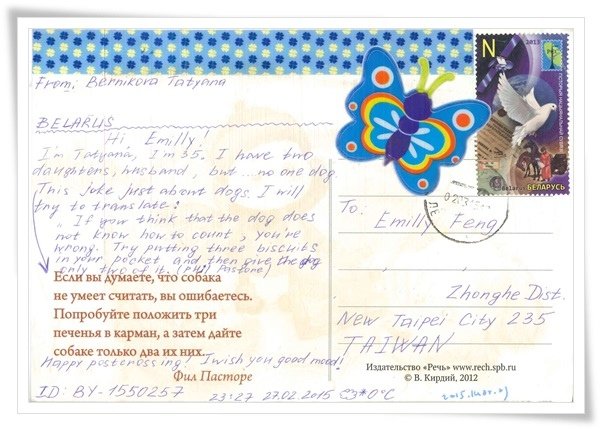 From: Bernikova Tatyana
BELARUS
Hi, Emilly!
I'm Tatyana, I'm 35. I have two
daughters, husband, but ... no one dog.
This joke just about dogs. I will
try to translate:
„If your think that the dog does
not know how to count, you're
wrong. Try putting three biscuits
in your pocket and then give the dog
only two of it. (Phil Pastore)
Если вы думаете, что собака
не умеет считать, вы ошибаетесь.
Попробуйте положить три
печенья в карман, а затем дайте
собаке только два их них.
Happy postcrossing! I wish you good mood!
Фил Пасторе
ID: BY-1550257
23:27 27.02.2015 0°C
N
2013
БЕЛАРУСЬ
To: Emilly Feng
Zhonghe Dist.
New Taipei City 235
TAIWAN
Издательство «Речь» www.rech.spb.ru
© В. Кирдий, 2012